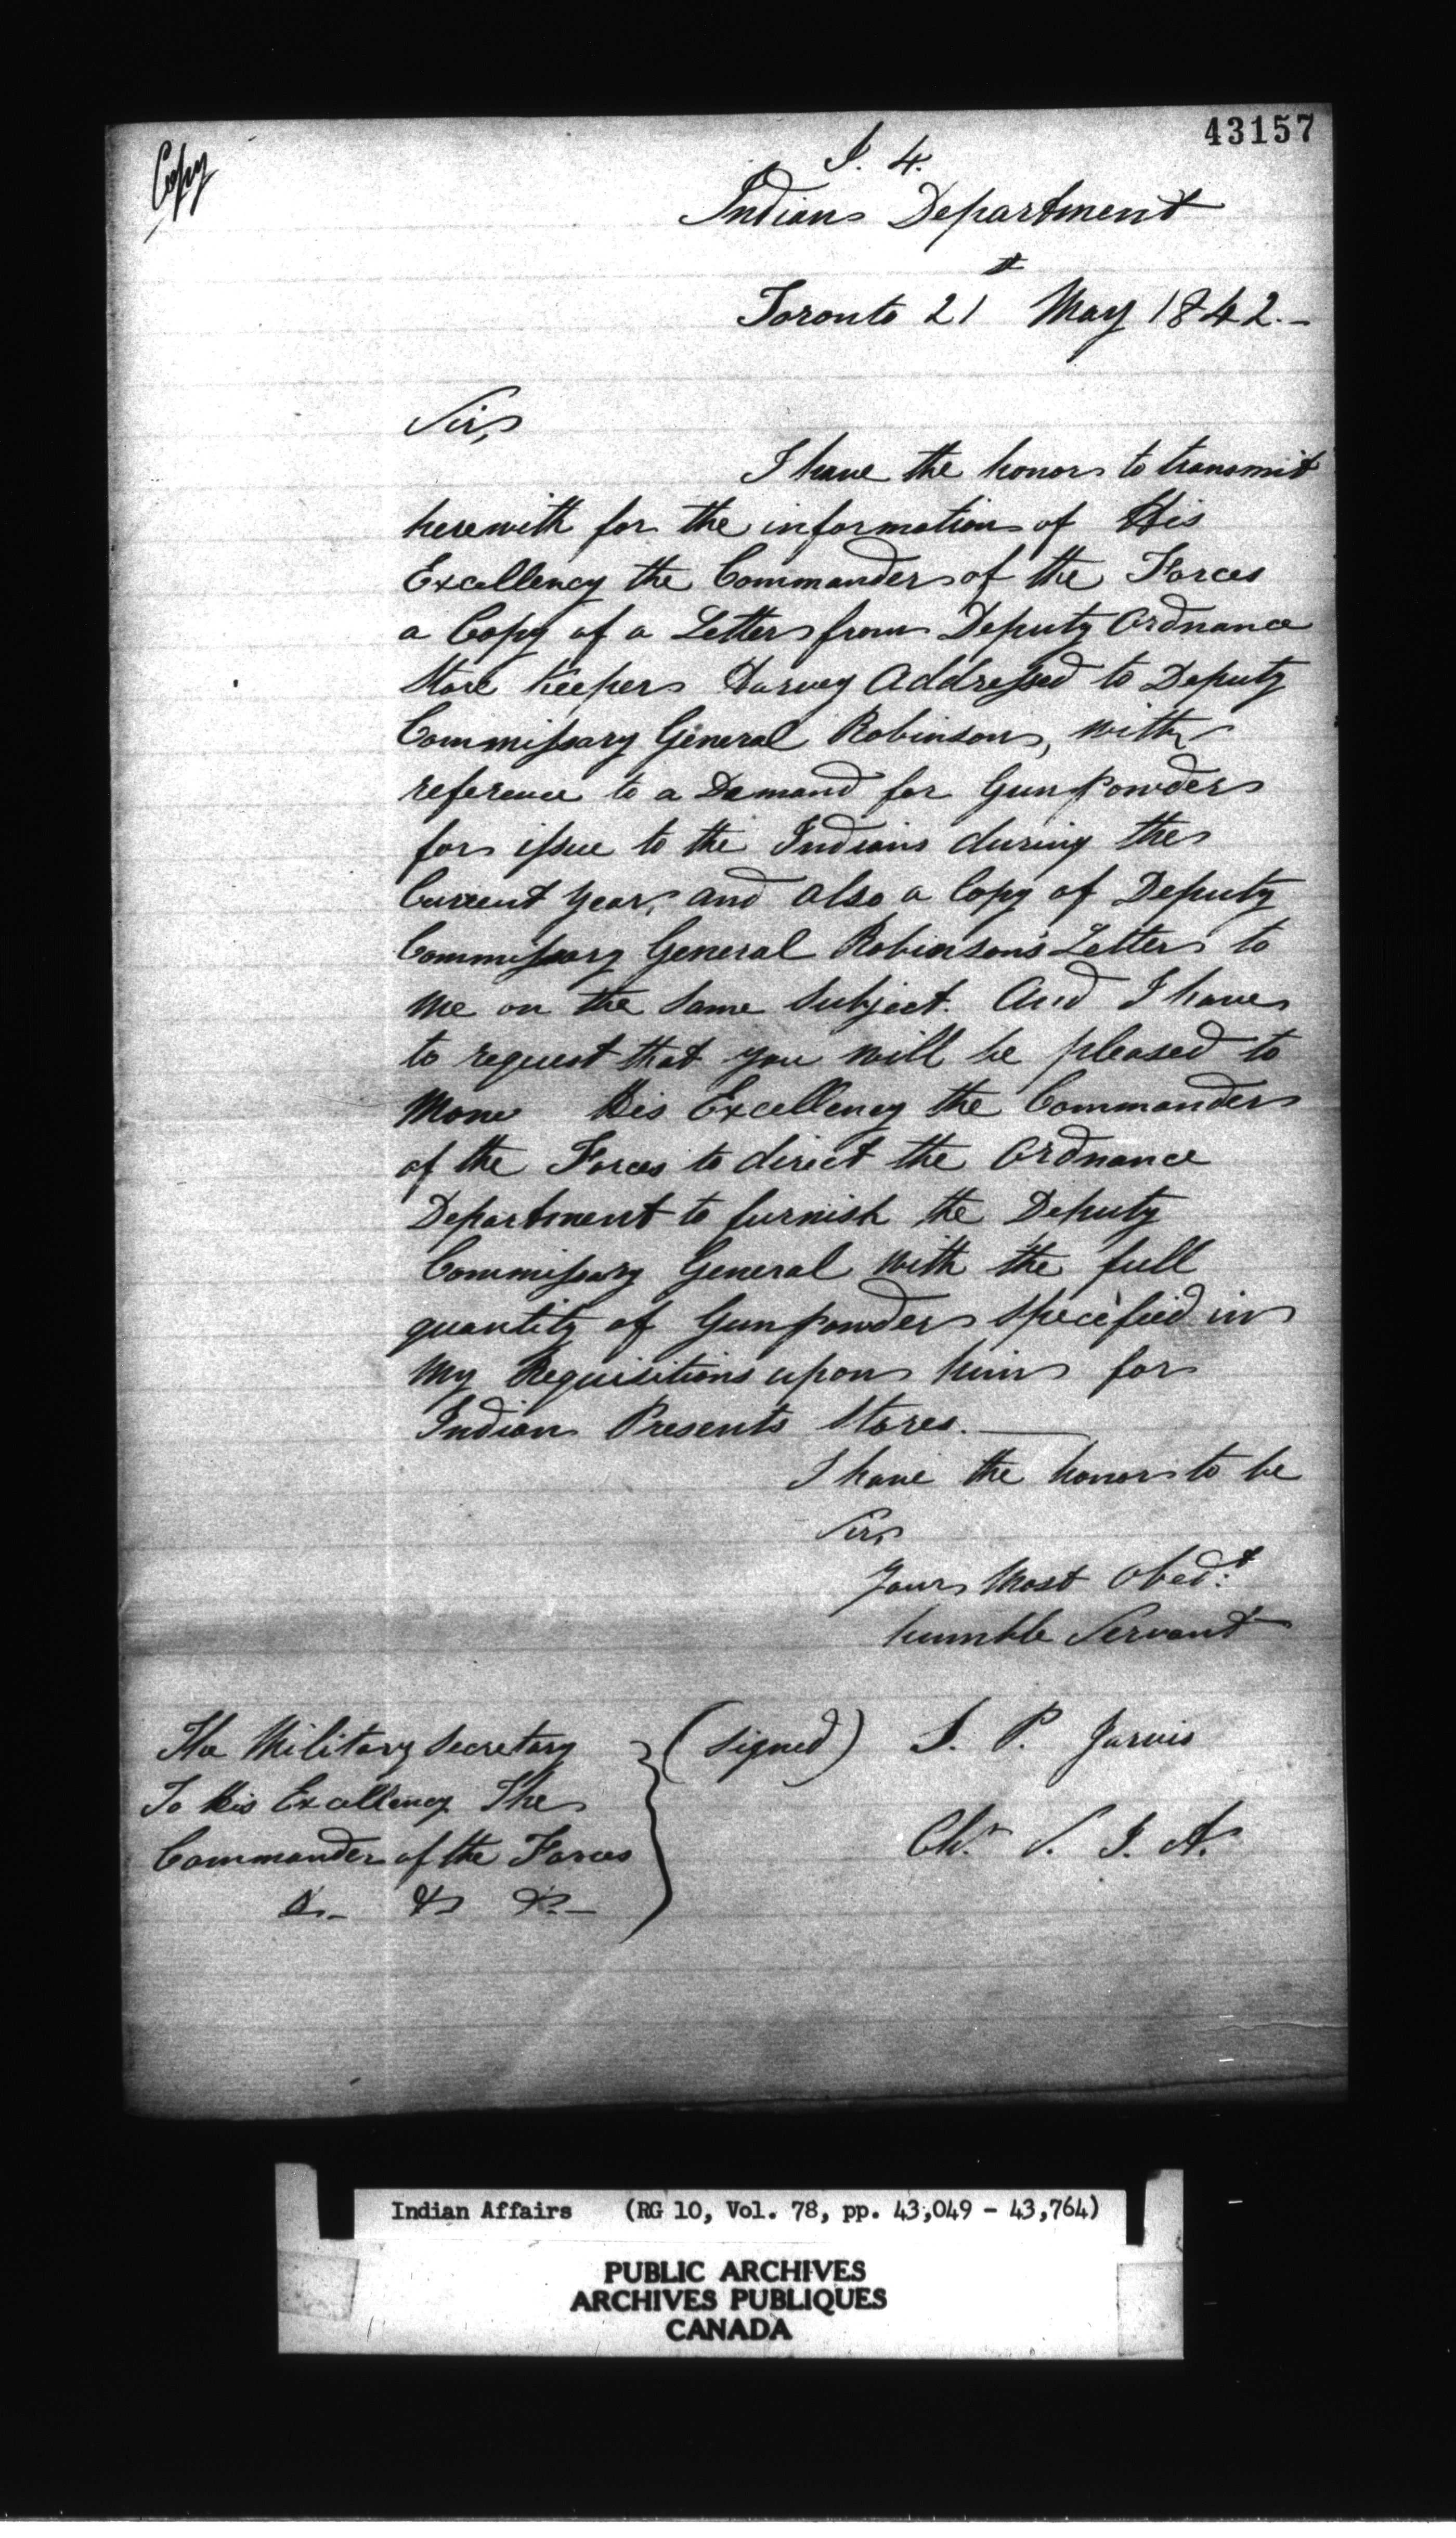 43157
Copy
I. 4.
Indian Department
Toronto 21st May 1842.-
Sir,
I have the honor to transmit
herewith for the information of His
Excellency the Commander of the Forces
a Copy of a Letter from Deputy Ordnance
Store Keeper Harvey Addressed to Deputy
Commissary General Robinson, with
reference to a Demand for Gunpowder
for issue to the Indians during the
Current Year, and also a Copy of Deputy
Commissary General Robinson's Letter to
me on the same subject. And I have
to request that you will be pleased to
Move His Excellency the Commander
of the Forces to direct the Ordnance
Department to furnish the Deputy
Commissary General with the full
quantity of Gunpowder specified in
my Requisitions upon him for
Indian Presents Stores.
I have the honor to be
Sir,
Your Most Obed:t
humble Servant
(signed) S. P. Jarvis
Ch. S. I. A.
The Military Secretary
To His Excellency The
Commander of the Forces
&c- &c &c-
Indian Affairs (RG 10, Vol. 78, pp. 43,049 - 43,764)
PUBLIC ARCHIVES
ARCHIVES PUBLIQUES
CANADA